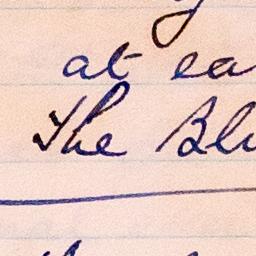 at ea
The Blu